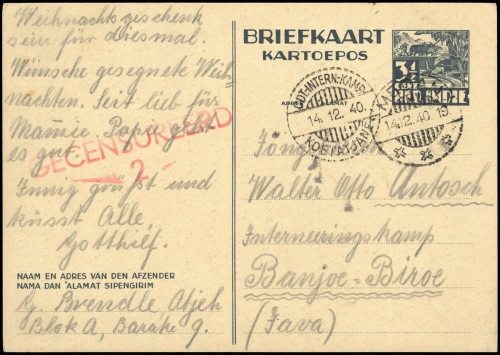 Weihnachtsgeschenk
sein für diesmal.
Wünsche gesegnete Weih-
nachten. Seit lieb für
Mamie. Papa geht
es gut.
Innig grüßt und
küsst Alle,
Gotthilf.
GECENSUREERD
2
NAAM EN ADRES VAN DEN AFZENDER
NAMA DAN ALAMAT SIPENGIRIM
Brendle, Atjeh
Blok A, Barake 9.
BRIEFKAART
KARTOEPOS
3½
CENT
ADRES ALAMAT
INTERN:KAMP
14.12.40.
KOETATJANE
14.12.40.19
Walter Otto Antosch
Interneeringskamp
Banjoe-Biroe
(Java)